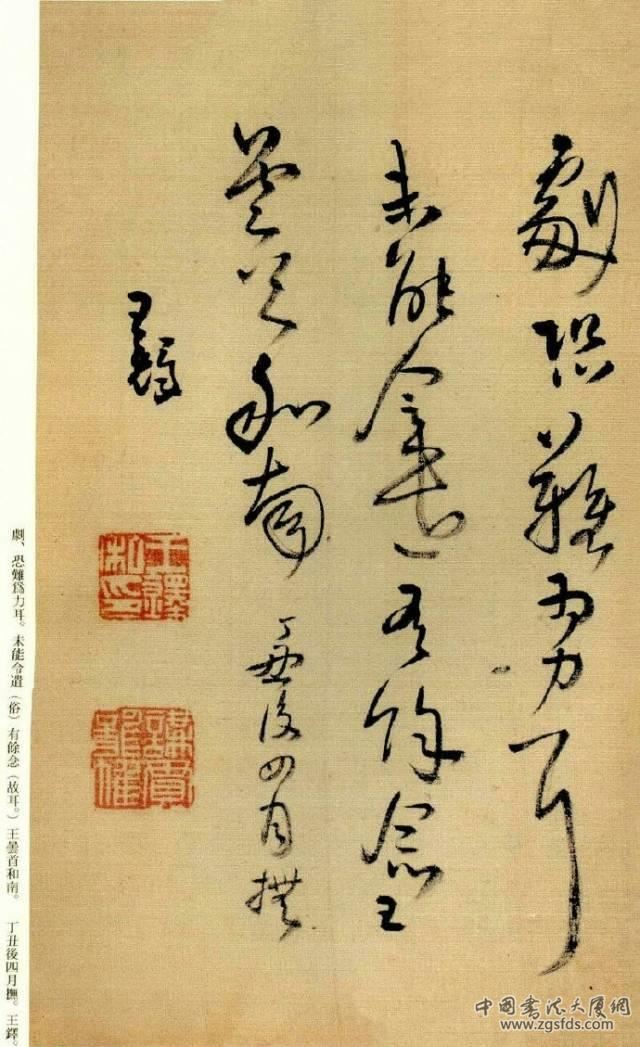 劇恐難爲力耳
未能令遣有餘念王
曇首和南 丁丑後四月撫
王鐸
王鐸私印
劇、恐難爲力耳。未能令遣（俗）有餘念（故耳。）王曇首和南。 丁丑後四月撫。王鐸。
中國書法大廈網
www.zgsfds.com